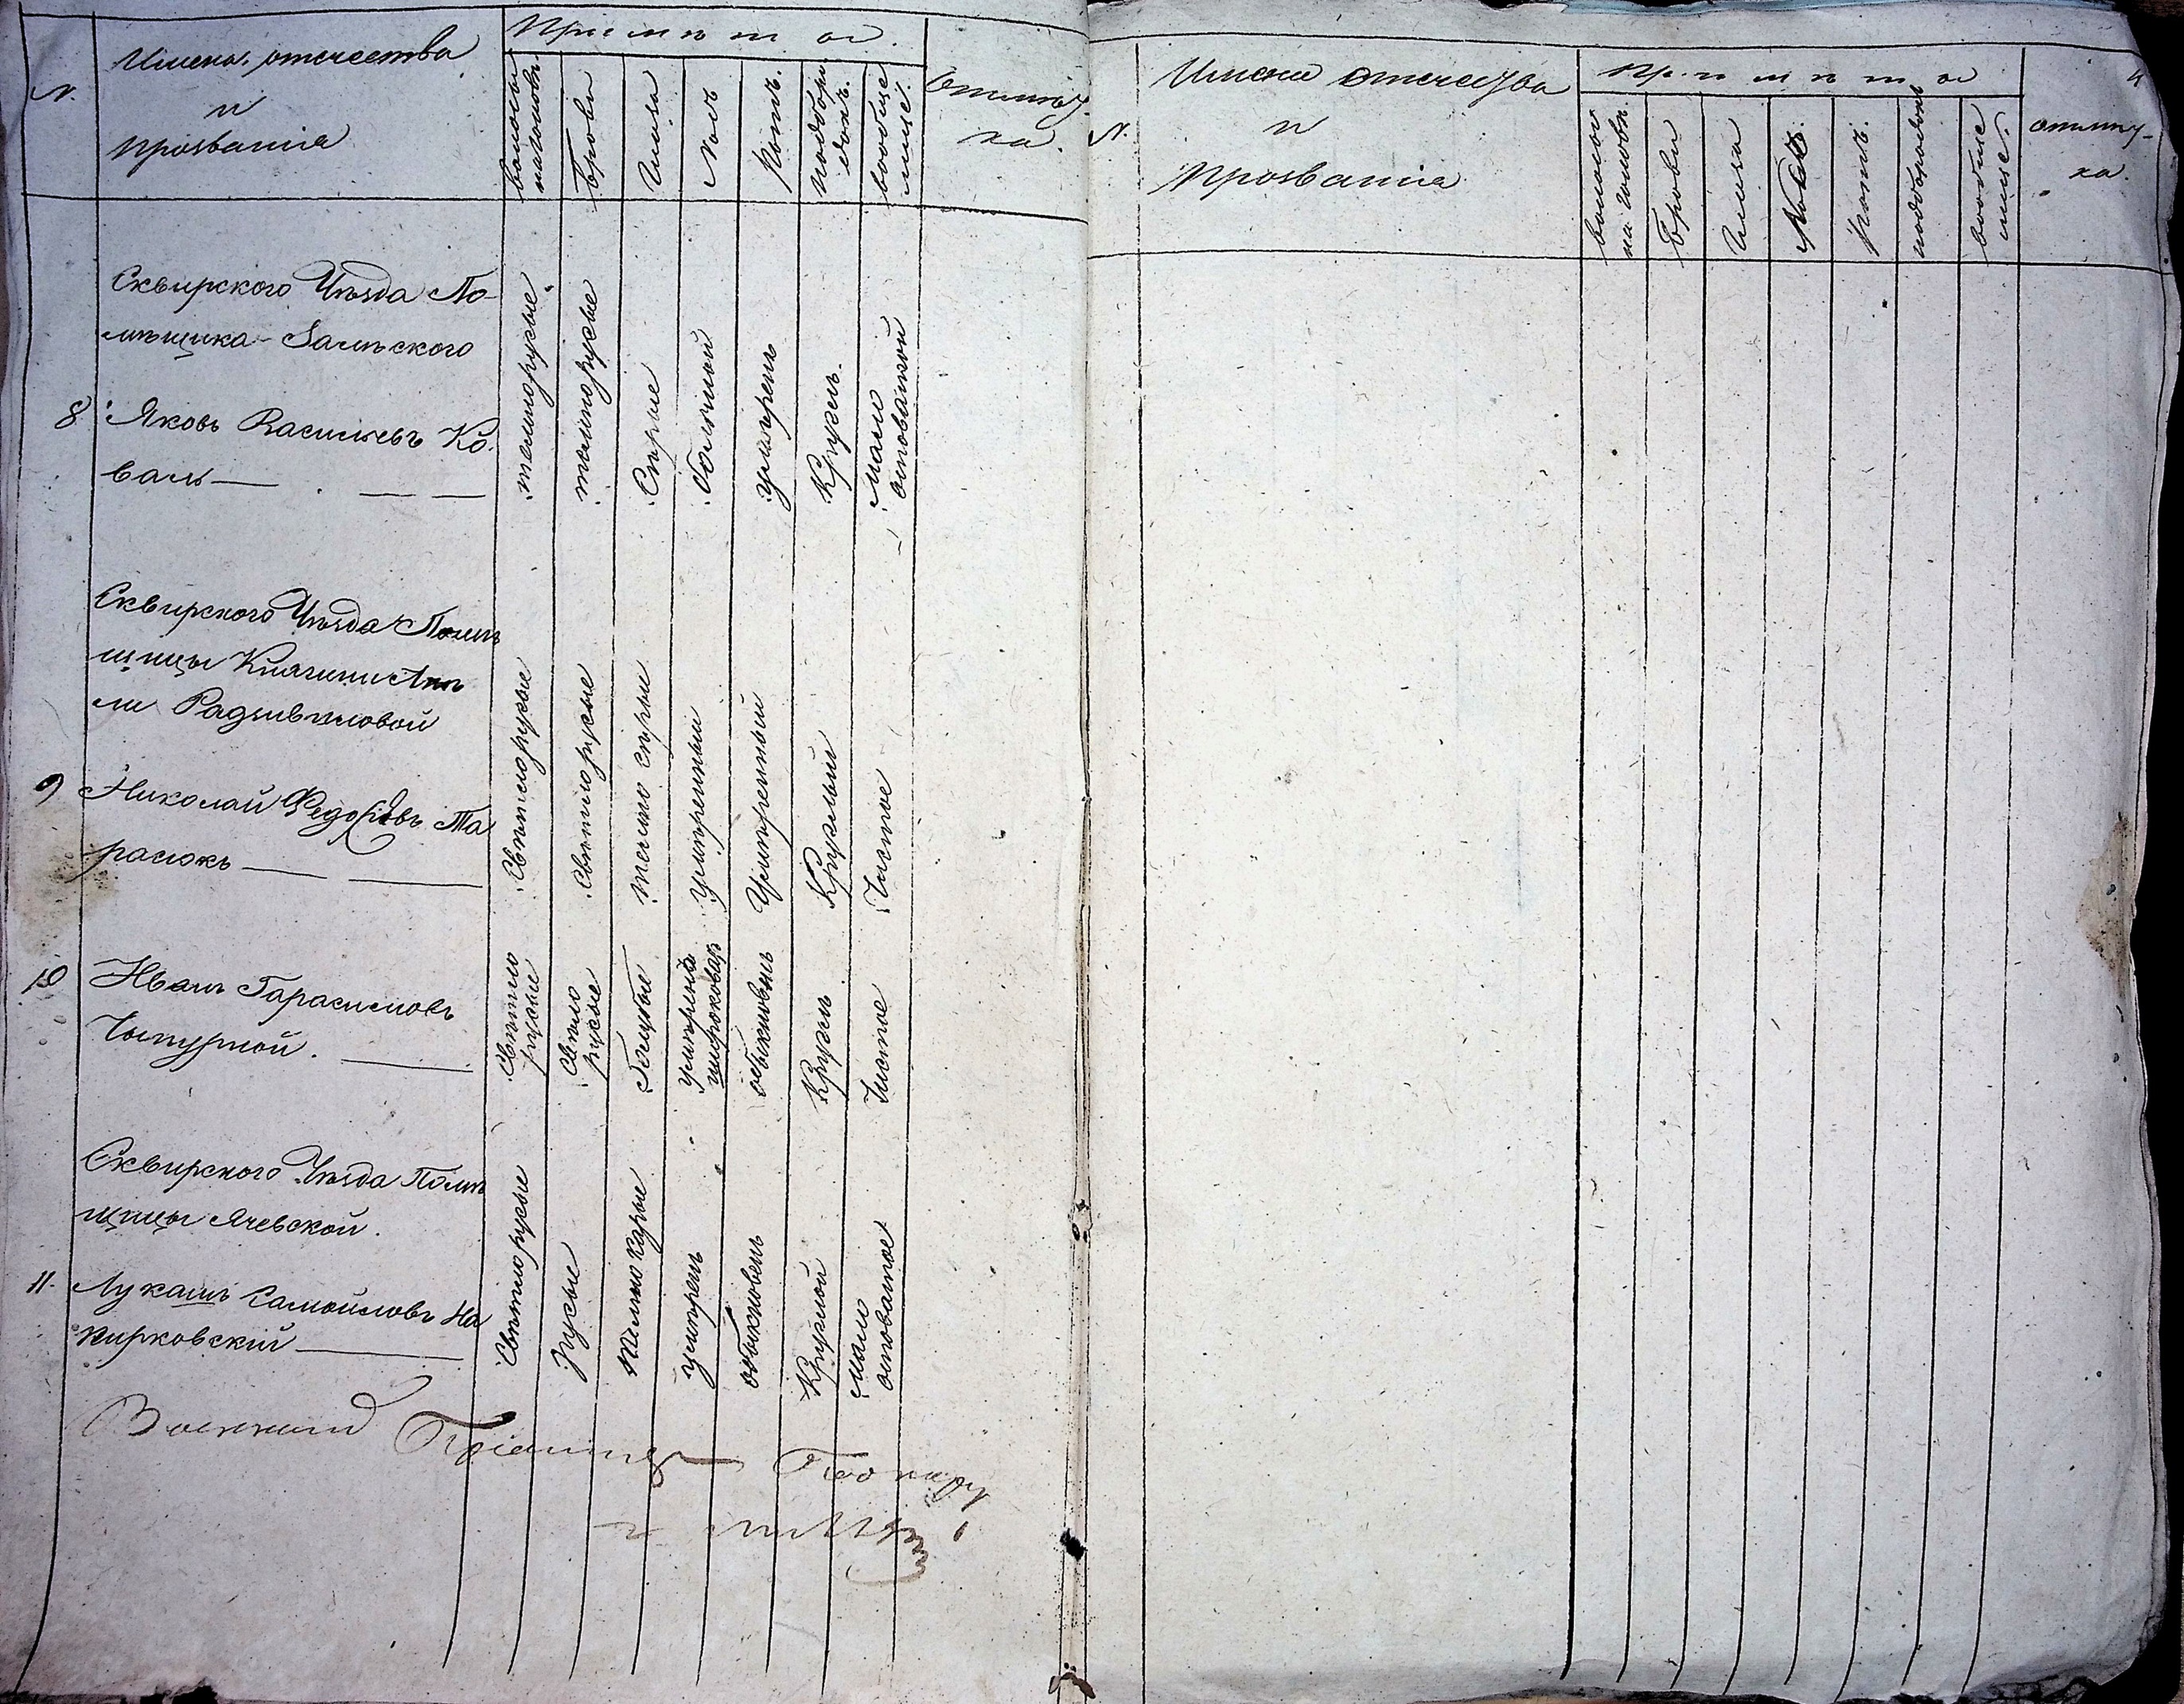 Примѣта
№.
Имена. отчества
и
прозванія
волосы
на головѣ.
Брови
Глаза
Носъ
Ротъ.
подборо
докъ.
вообще
лице.
отмѣт
ка.
Сквирского Уѣзда По-
мѣщика Залѣского
8 Яковъ Васильевъ Ко-
валь
темнорусые
темнорусые
Сѣрые
большой
умѣрень
Кругль.
мало
осповатой
Сквирского Уѣзда Помѣ
щицы Княгини
ли Радзивиловой
9 Николай Федоровъ Та
расюкъ
Свѣтлорусые
Свѣтлорусые
темно сѣрые
Умѣренный
Умѣренный
Круглый
Чистое
10 Иванъ Гарасимовъ
Чепурной.
Свѣтло
русые
Свѣтло
русые
Голубые
умѣренъ
широковатъ
обыкновень
Кругль
Чистое
Сквирского Уѣзда Помѣ
щицы Ячевской.
11. Лукашъ Самойловъ На
пирковскій
Свѣтлорусые
Русые
темно карые
умѣрень
обыкновень
Круглой
мало
осповатое
Военный Пріемщикъ
4
Примѣта
№.
Имена отчества
и
прозванія
волосы
на головѣ.
Брови
Глаза
Носъ
Ротъ.
подбородокъ
вообще
лице.
отмѣт-
ка.